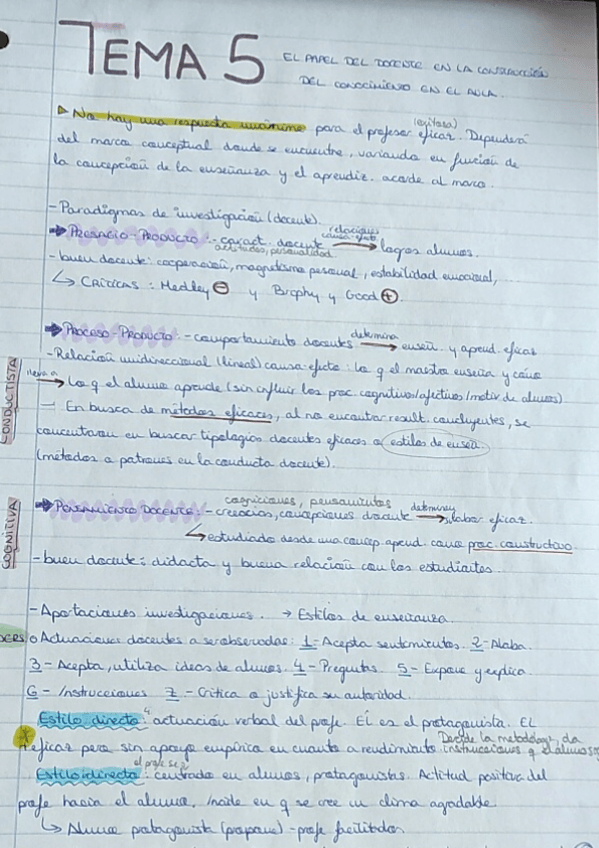 TEMA 5
EL PAPEL DEL DOCENTE EN LA CONSTRUCCIÓN
DEL CONOCIMIENTO EN EL AULA.
▶ No hay una respuesta unánime para el profesor eficaz. (exitoso) Dependerá
del marco conceptual donde se encuentre, variando en función de
la concepción de la enseñanza y el aprendiz. acorde al marco.
- Paradigmas de investigación (docente).
➡ PRESAGIO-PRODUCTO - caract. docente (relación causa-efecto) → logros alumnos.
actitudes, personalidad
- buen docente: cooperación, magnetismo personal, estabilidad emocional,...
↳ CRÍTICAS: Medley ⊖ y Brophy y Good ⊕.
CONDUCTISTA
➡ PROCESO-PRODUCTO: - comportamiento docentes determina → enseñ. y aprend. eficaz
- Relación unidireccional (lineal) causa-efecto: lo q el maestro enseña y cómo
lleva a → lo q el alumno aprende (sin influir los proc. cognitivos/afectivos/motiv. de alumos)
- En busca de métodos eficaces, al no encontrar result. concluyentes, se
concentraron en buscar tipologías docentes eficaces o estilos de enseñ.
(métodos o patrones en la conducta docente).
COGNITIVA
cogniciones, pensamientos
➡ PENSAMIENTO DOCENTE: - creencias, concepciones docente determina → labor eficaz.
↳ estudiado desde una concep. aprend. como proc. constructivo
- buen docente: didacta y buena relación con los estudiantes...
- Aportaciones investigaciones. → Estilos de enseñanza.
DERS o Actuaciones docentes a ser observadas: 1= Acepta sentimientos. 2= Alaba.
3- Acepta, utiliza ideas de alumos. 4- Preguntas 5- Expone y explica.
6- Instrucciones 7- Crítica o justifica su autoridad.
Estilo directo: actuación verbal del profe. Él es el protagonista. EL
Decide la metodología, da
+ eficaz pero sin apoyo empírico en cuanto a rendimiento instrucciones q el alumno
el profe se
Estilo indirecto: centrado en alumos, protagonistas. Actitud positiva del
profe hacia el alumno, incide en q se cree un clima agradable
↳ Alumno protagonista (propone) - profe facilitador.